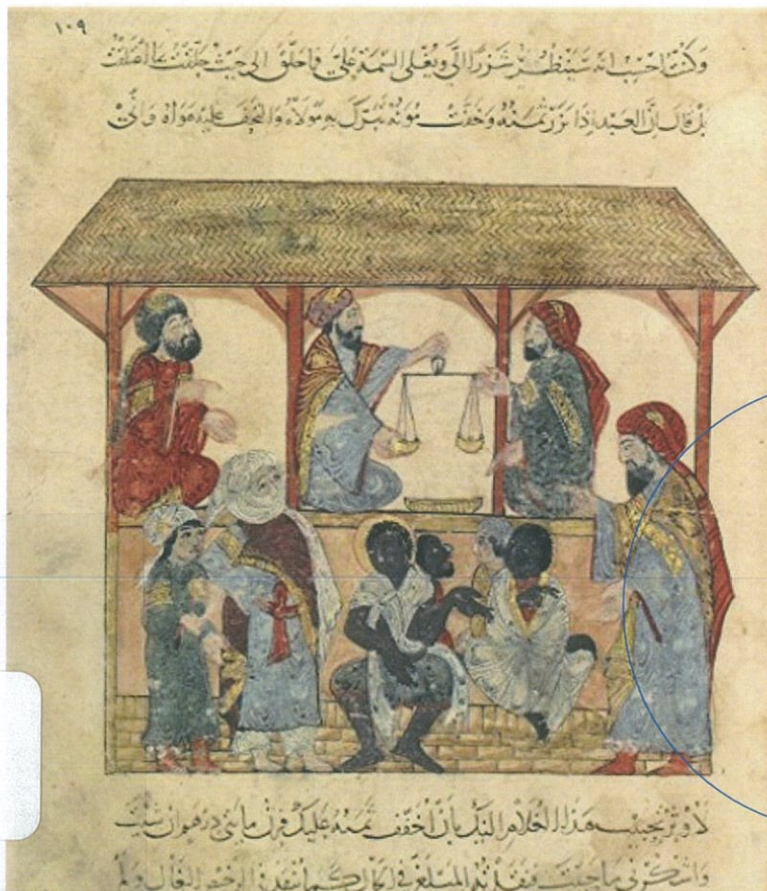 ١٠٩
وكنت احسب انه سينظر شزرا الي ويغلى السيمة علي فما حلق الى حيث حلقت
بل قال ان العبد اذا نزر ثمنه وخفت مونه تبرك به مولاه والتحف عليه هواه واني
لاوثر تحبيب هذا الغلام اليك بان اخفف ثمنه عليك فزن مايتي درهم ان شيت
واشكر لي ما حييت فنقدته المبلغ في الحال كما ينقد في الرخيص ولم